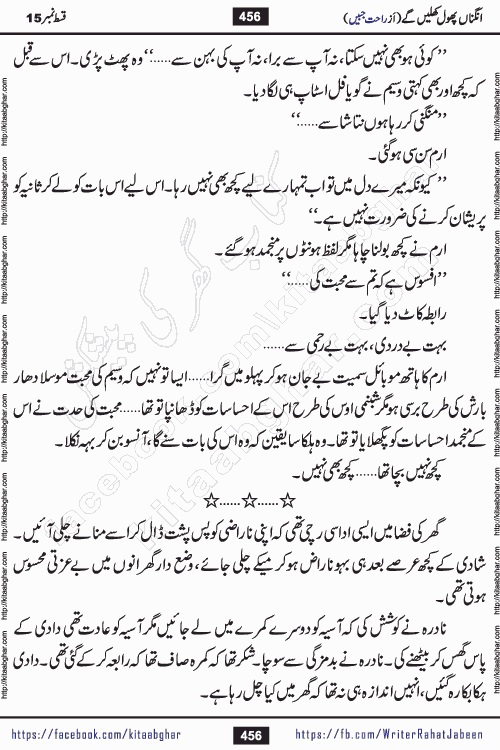 انگناں پھول کھلیں گے (از راحت جبیں) 456 قسط نمبر 15
’’کوئی ہو بھی نہیں سکتا، نہ آپ سے برا، نہ آپ کی بہن سے......‘‘ وہ پھٹ پڑی۔ اس سے قبل
کہ کچھ اور بھی کہتی وسیم نے گویا فل اسٹاپ ہی لگا دیا۔
’’منگنی کر رہا ہوں نتاشا سے......‘‘
ارم سن سی ہو گئی۔
’’کیونکہ میرے دل میں تو اب تمہارے لیے کچھ بھی نہیں رہا۔ اس لیے اس بات کو لے کر ثانیہ کو
پریشان کرنے کی ضرورت نہیں ہے۔‘‘
ارم نے کچھ بولنا چاہا مگر لفظ ہونٹوں پر منجمد ہو گئے۔
’’افسوس ہے کہ تم سے محبت کی......‘‘
رابطہ کاٹ دیا گیا۔
بہت بے دردی، بہت بے رحمی سے......
ارم کا ہاتھ موبائل سمیت بے جان ہو کر پہلو میں گرا...... ایسا تو نہیں کہ وسیم کی محبت موسلا دھار
بارش کی طرح برسی ہو مگر شبنمی اوس کی طرح اس کے احساسات کو ڈھانپا تو تھا...... محبت کی حدت نے اس
کے منجمد احساسات کو پگھلایا تو تھا۔ وہ ہلکا سا یقین کہ وہ اس کی بات سنے گا، آنسو بن کر بہہ نکلا۔
کچھ نہیں بچا تھا...... کچھ بھی نہیں۔
☆......☆......☆
گھر کی فضا میں ایسی اداسی رچی تھی کہ اپنی ناراضی کو پس پشت ڈال کر اسے منانے چلی آئیں۔
شادی کے کچھ عرصے بعد ہی بہو ناراض ہو کر میکے چلی جائے، وضع دار گھرانوں میں بے عزتی محسوس
ہوتی تھی۔
نادرہ نے کوشش کی کہ آسیہ کو دوسرے کمرے میں لے جائیں مگر آسیہ کو عادت تھی دادی کے
پاس گھس کر بیٹھنے کی۔ نادرہ نے بدمزگی سے سوچا۔ شکر تھا کہ کمرہ صاف تھا کہ رابعہ کر کے گئی تھی۔ دادی
ہکا بکا رہ گئیں، انہیں اندازہ ہی نہ تھا کہ گھر میں کیا چل رہا ہے۔
https://facebook.com/kitaabghar 456 https://fb.com/WriterRahatJabeen
http://kitaabghar.com
کتاب گھر کی پیشکش
facebook.com/kitaabghar
kitaabghar.com